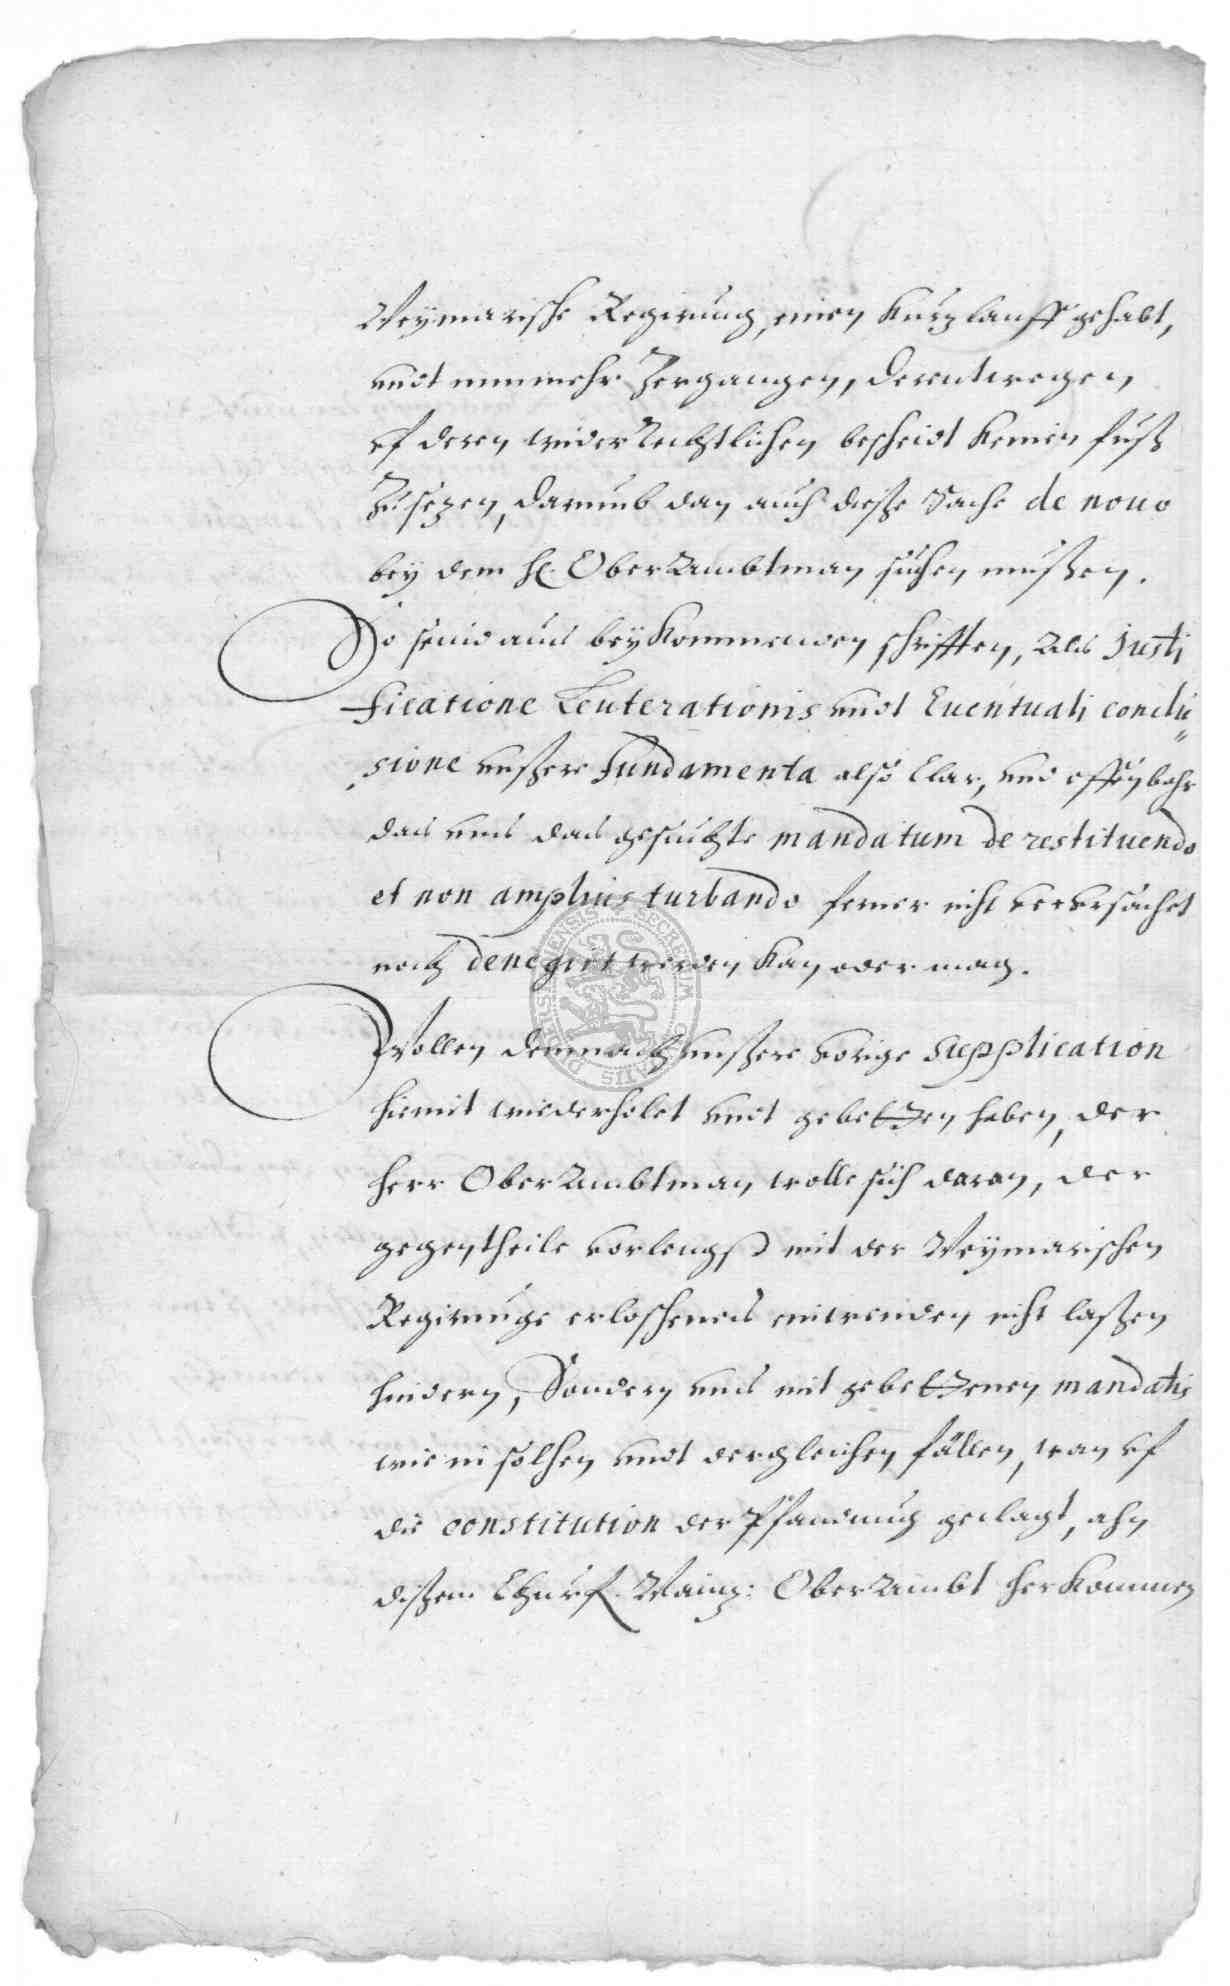 Weÿmarische Regirung, einen kurz lauff gehabt,
undt nunmehr zergangen, derentwegen
uf deren wider Rechtlichen bescheidt keinen fuß
Zusezen, darumb dan auch dieße Sache de nouo
beÿ dem H. OberAmbtman suchen mußen.
So seind aus beÿkommenden schrifften, als Justi
ficatione Leuterationis undt Euentuali conclu=
sione unßere Fundamenta also klar, und offenbahr
das uns das gesuchte mandatum de restituendo
et non amplius turbando ferner nicht verursachet
noch denegirt werden kan oder mag.
Wollen demnach unßere vorige Supplication
hiemit wiederholet undt gebetten haben, der
Herr OberAmbtman wolle sich daran, der
gegentheile vorlengst mit der Weÿmarischen
Regirunge erloschenes einwenden nicht laßen
hindern, Sondern uns mit gebettenen mandatis
wie in solchen undt dergleichen fällen, wan uf
die constitution der Pfandung geclagt, ahn
dißem Churf. Mainz: OberAmbt herkommen